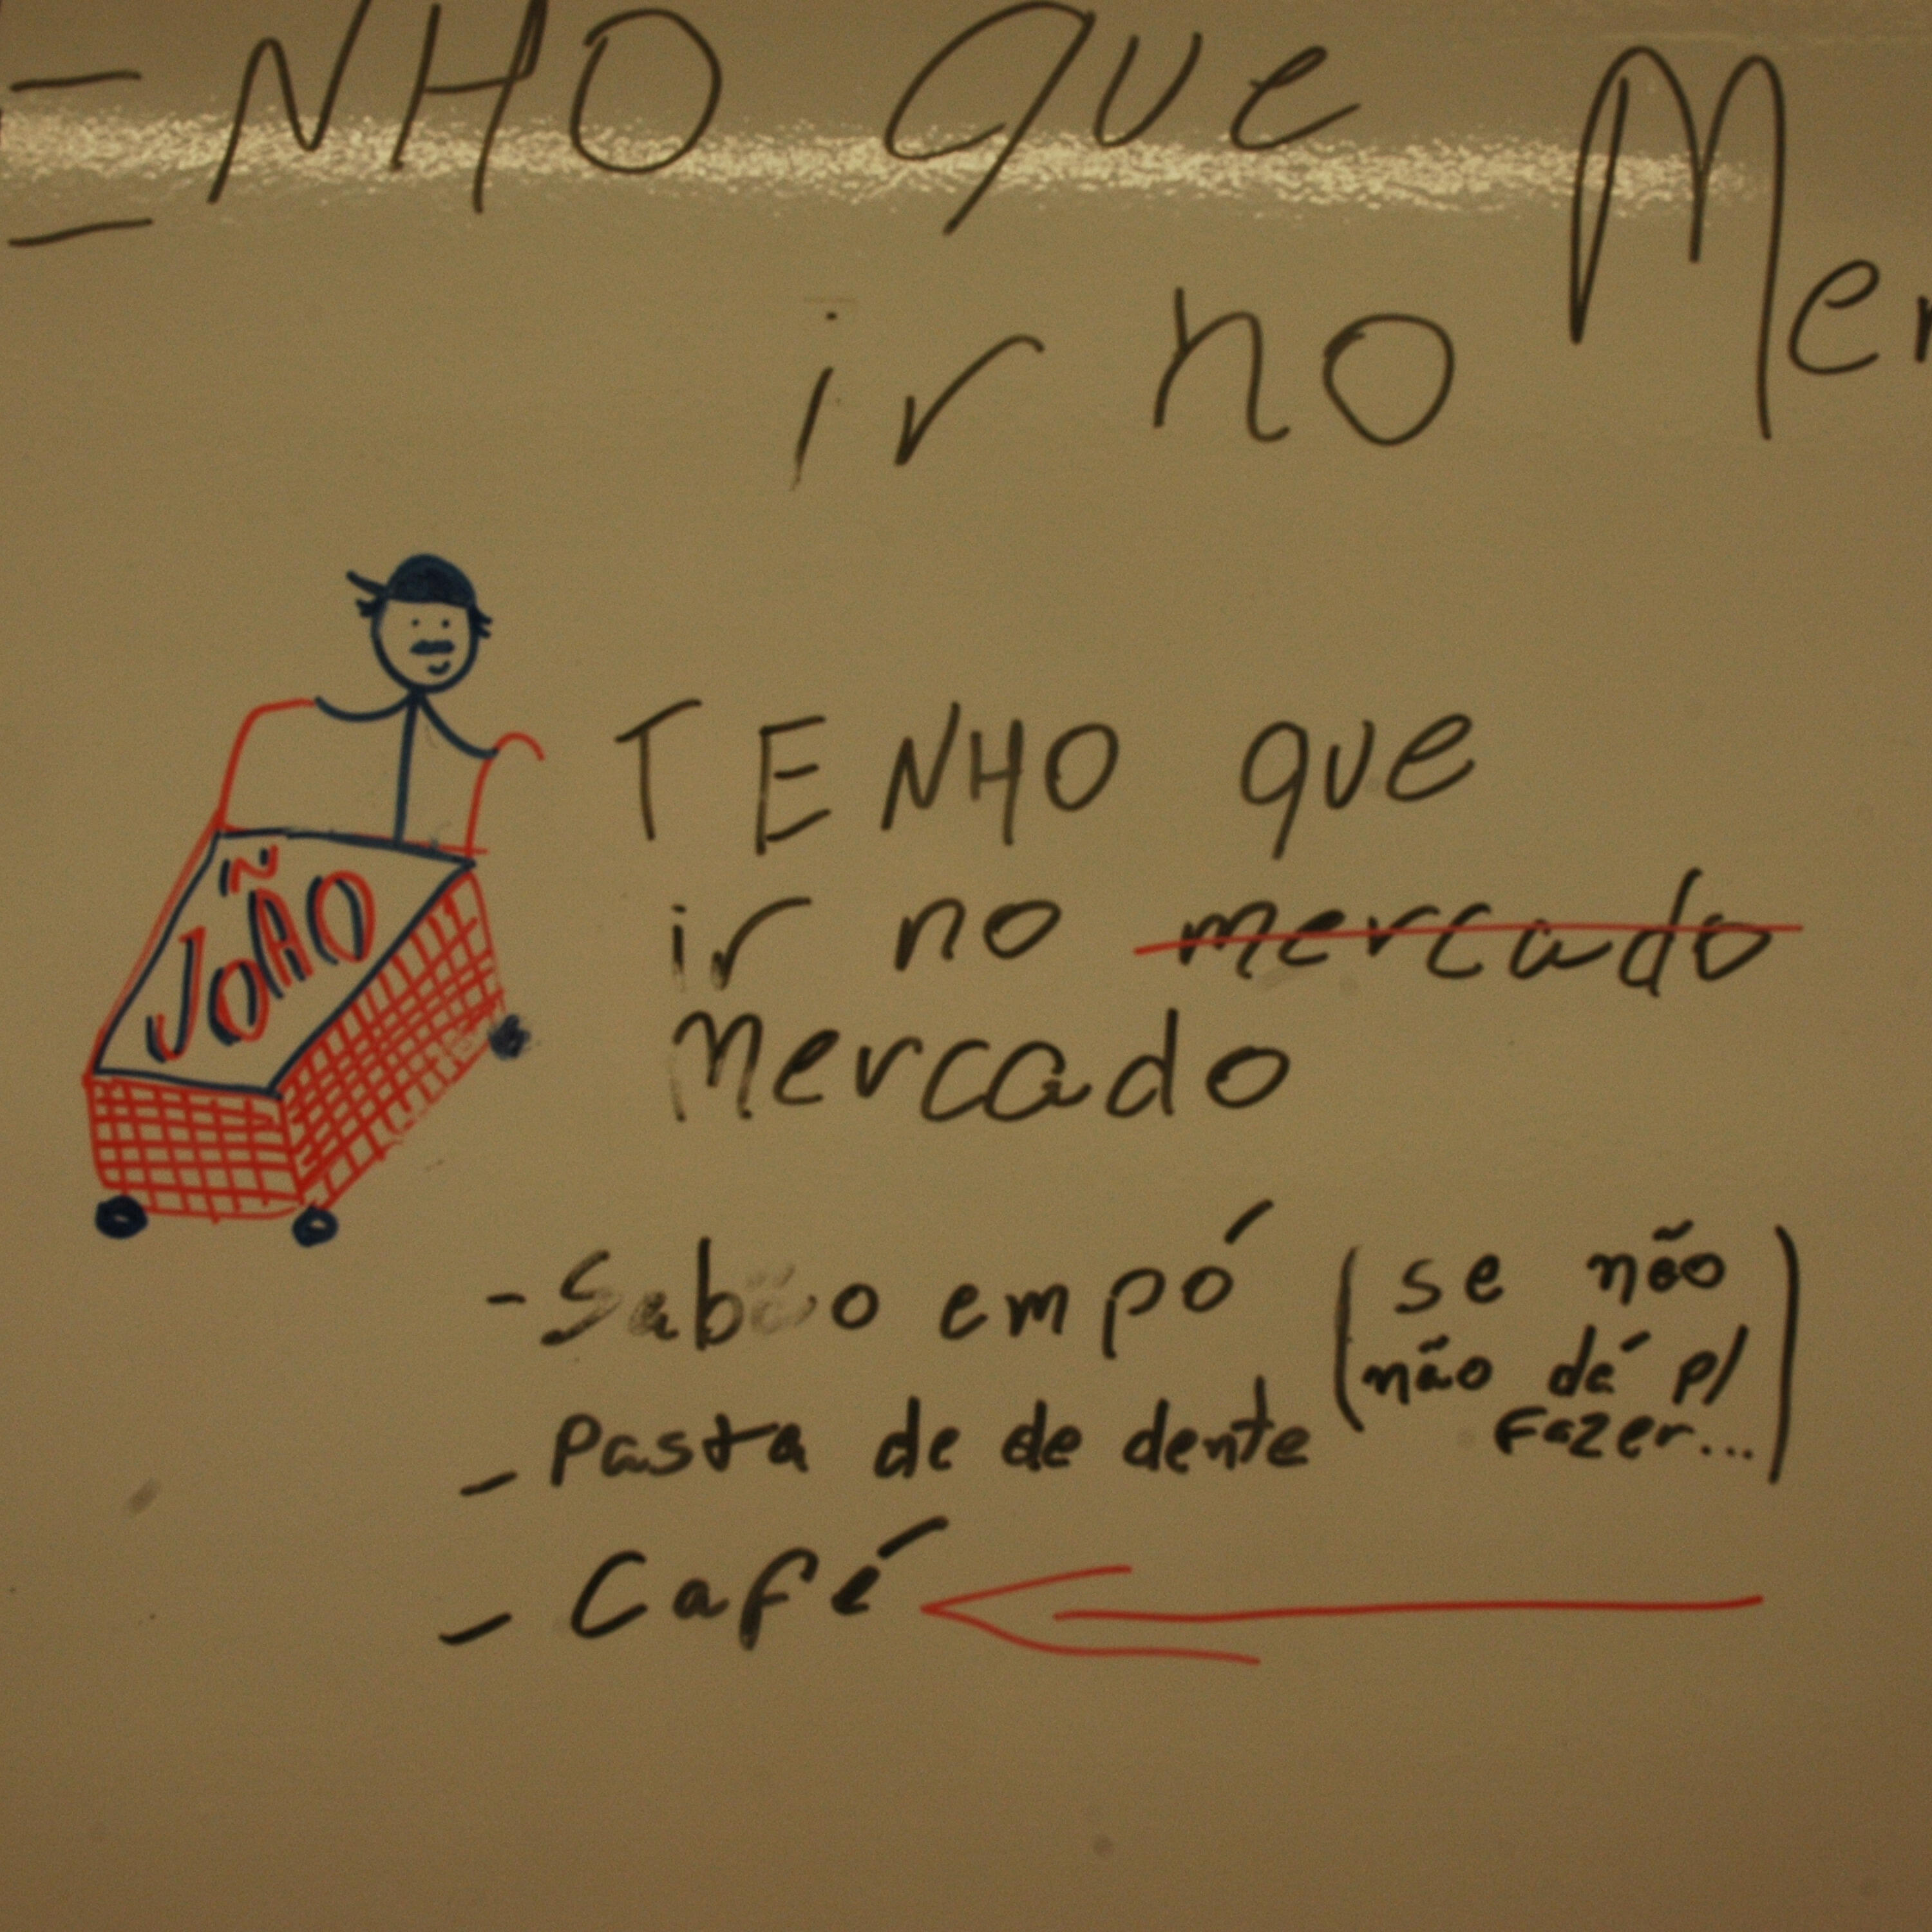 ENHO que
ir no Mer
JOÃO
TENHO que
ir no mercado
Mercado
- Sabão em pó (se não
não dé p/
fazer...)
- Pasta de de dente
- Café